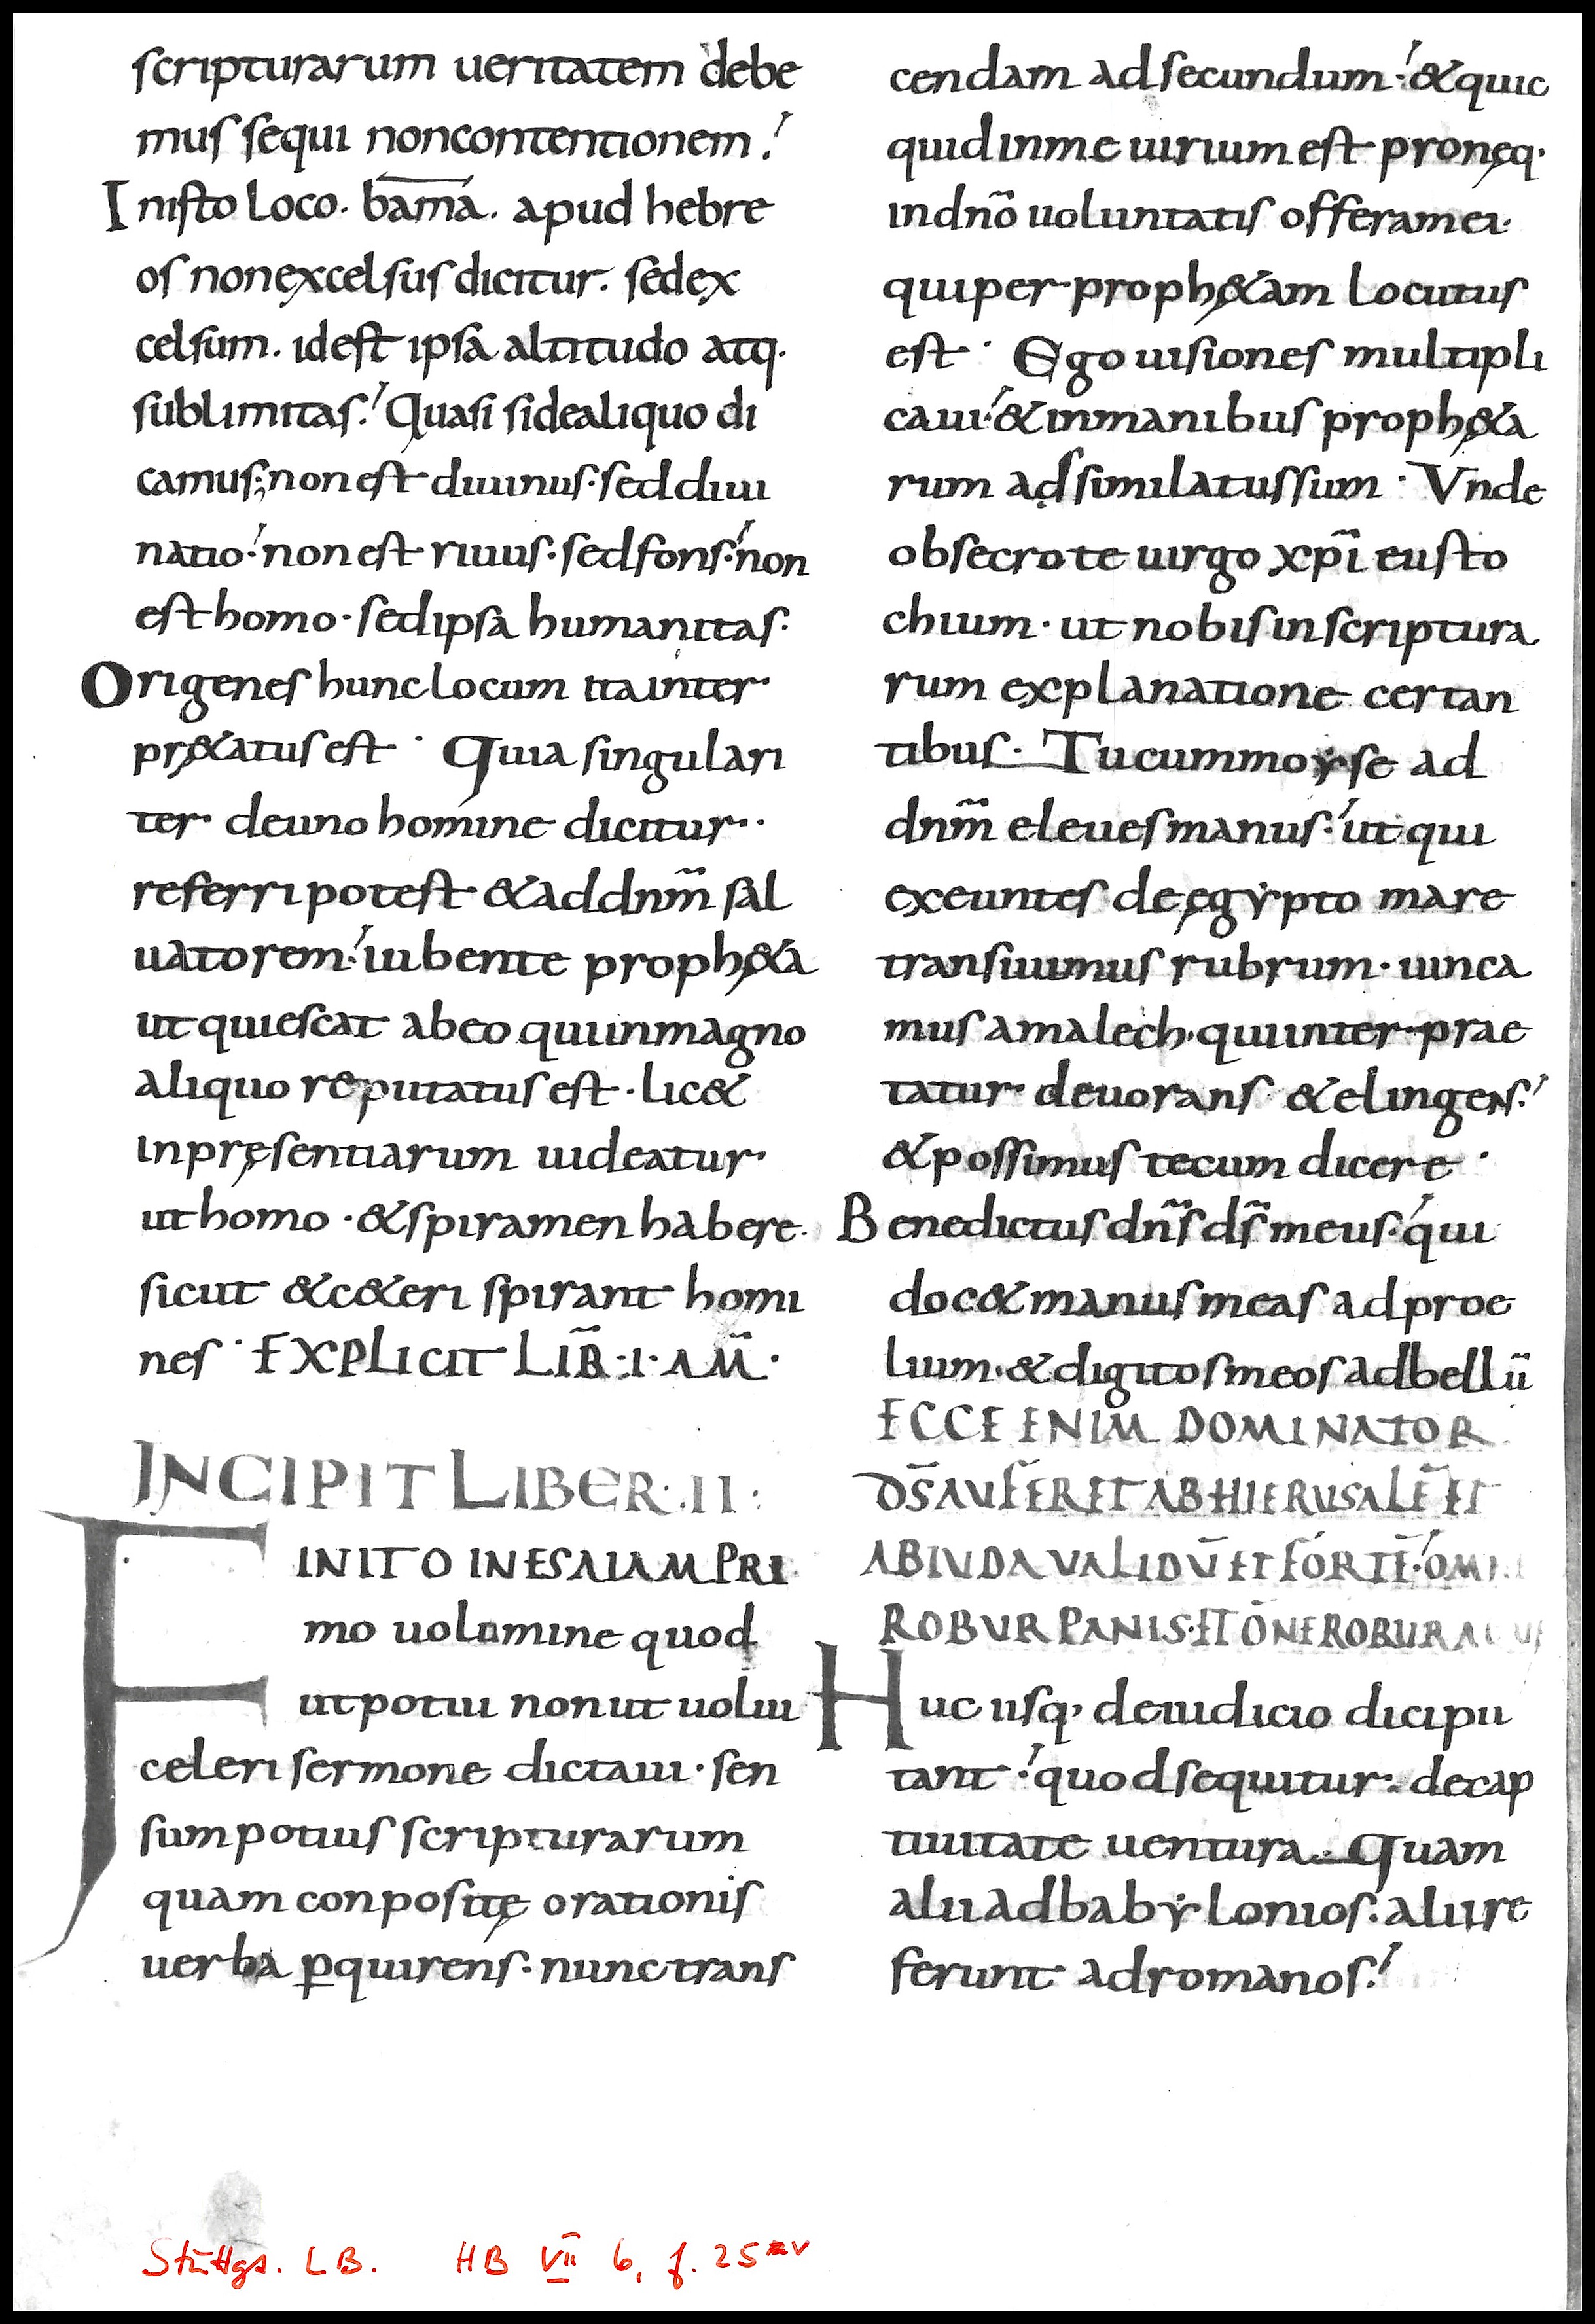 scripturarum ueritatem debe
mus sequi noncontentionem.
Inisto loco. bama. apud hebre
os nonexcelsus dicitur. sedex
celsum. idest ipsa altitudo atq.
sublimitas. Quasi sidealiquo di
camus; non est diuinus. sed diui
natio. non est riuus. sed fons. non
est homo. sed ipsa humanitas.
Origenes hunc locum ita inter
pr&atus est. Quia singulari
ter deuno homine dicitur.
referri potest & addnm̃ sal
uatorem. iubente proph&a
ut quiescat abeo quiinmagno
aliquo reputatus est. lic&
inpręsentiarum uideatur
ut homo. & spiramen habere.
sicut &c&eri spirant homi
nes. EXPLICIT LIB̃. I. AM̃.
INCIPIT LIBER. II.
FINITO INESAIAM PRI
mo uolumine quod
utpotui nonut uolui
celeri sermone dictaui. sen
sum potius scripturarum
quam conpositę orationis
uerba ꝑquirens. nunc trans
cendam adsecundum. & quic
quid inme uirium est pronęq.
indnõ uoluntatis offeram ei.
quiper proph&am locutus
est. Ego uisiones multipli
caui. & inmanibus proph&a
rum adsimilatus sum. Vnde
obsecro te uirgo xpĩ eusto
chium. ut nobis inscriptura
rum explanatione certan
tibus. Tu cummoyse ad
dnm̃ eleues manus. ut qui
exeuntes deęgẏpto mare
transiuimus rubrum. uinca
mus amalech. quiinter prae
tatur deuorans & elingens.
& possimus tecum dicere.
Benedictus dns̃ ds̃ meus. qui
doc& manus meas adproe
lium. & digitos meos adbellũ
ECCE ENIM DOMINATOR
DS̄ AUFERET AB HIERUSALĒ ET
AB IUDA VALIDŪ ET FORTĒ.
ROBVR PANIS. ET OM̄NE ROBUR
Huc usq, deiudicio dicipu
tant. quod sequitur. decap
tiuitate uentura. Quam
alii adbabẏlonios. alii re
ferunt adromanos.
Stuttgt. LB. HB VII 6, f. 25v